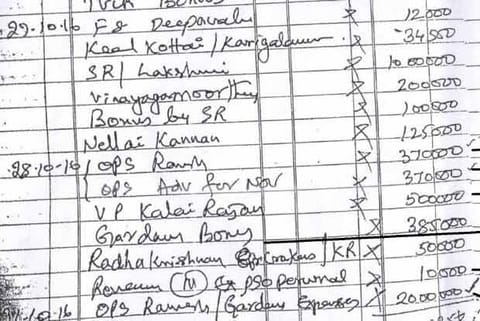 Bonus
29.10.16 F S Deepavali X 12000
Keel Kottai / Karigalanur X 34500
SR / Lakshmi X 1000000
Vinayagamoorthy X 200000
Bonus by SR X 100500
Nellai Kannan X 125000
28-10-16 OPS Ramesh X 370000
OPS Adv for Nov X 370000
V P Kalai Rajan X 500000
Gardens Bonus X 385000
Radhakrishnan / KR X 50000
Revenue (M) PSO personal X 10000
.10.16 OPS Ramesh / Gardens Expenses X 2000000